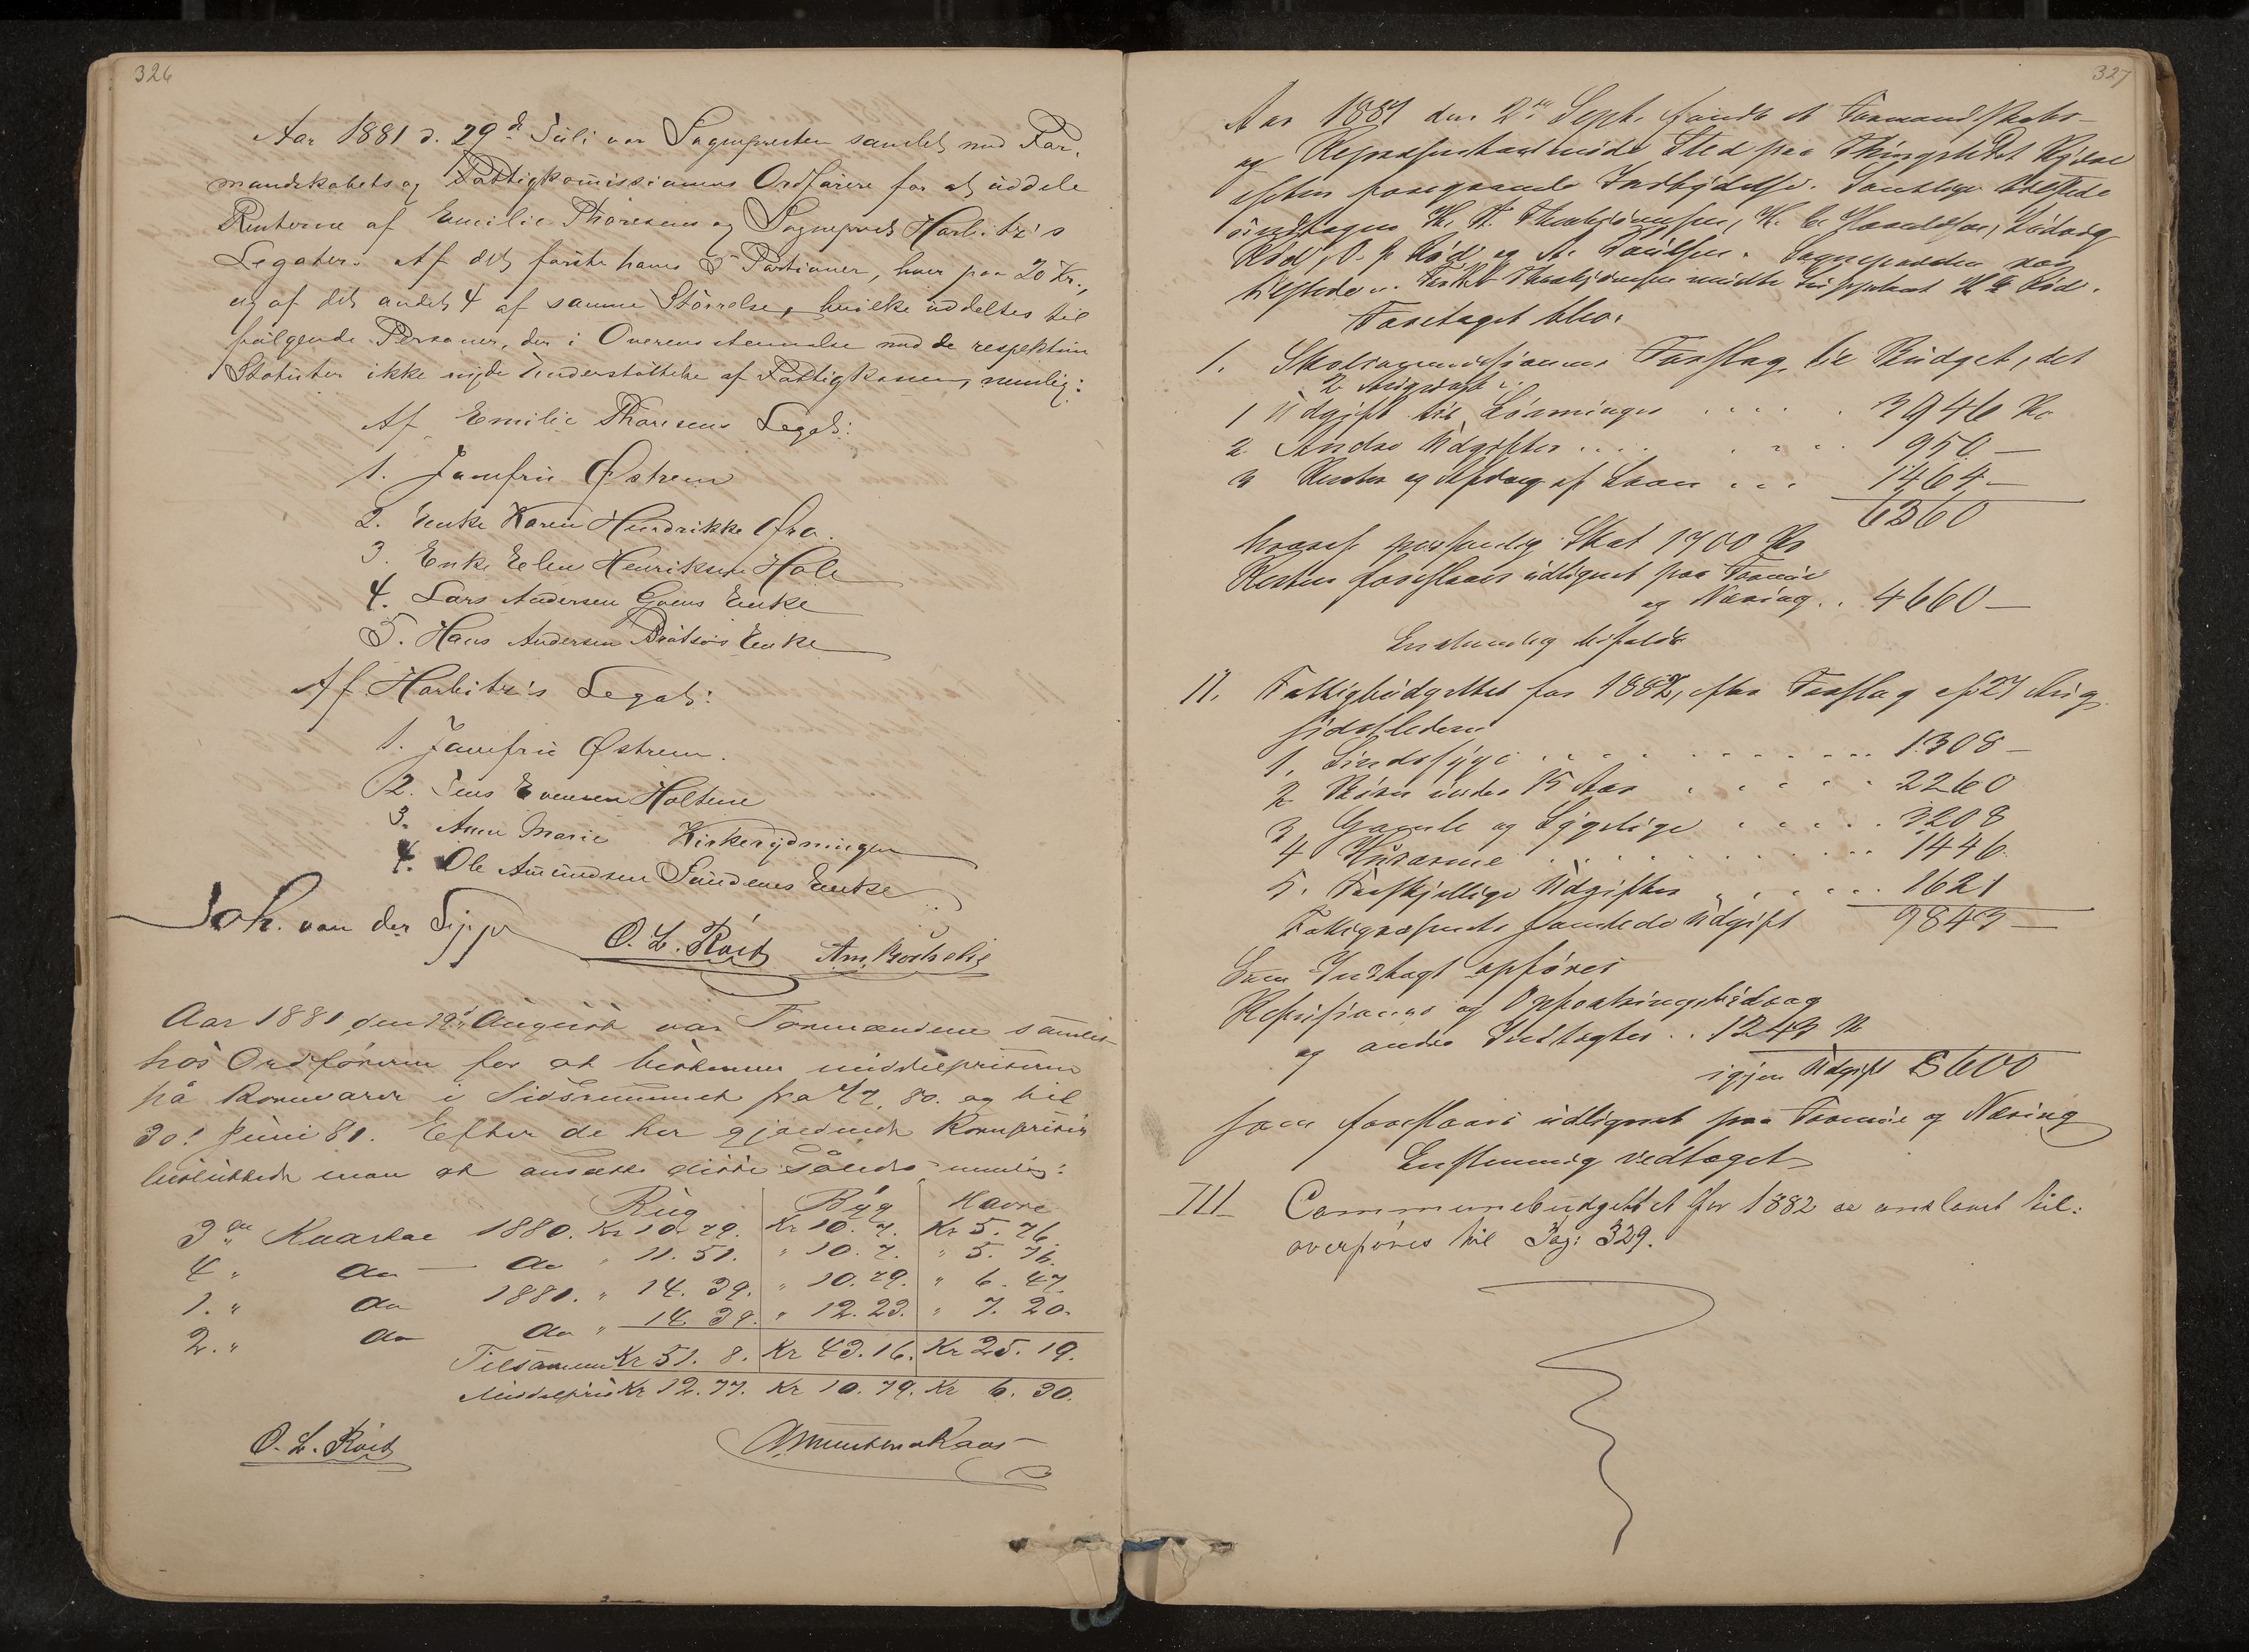 326
Aar 1881 d. 29de Juli var Sognepresten samlet med For,
mandskabets og Fattigkomissionens Ordførere for at uddele
Renterne af Emilie Thoresens og Sogneprest Harbitz's
Legater. Af det første haves 5 Portioner, hver paa 20 Kr.,
og af det andet 4 af samme Størrelse, hvilke uddeltes til
følgende Personer, der i Overensstemmelse med de respektive
Statuter ikke nyde Understøttelse af Fattigkassen, nemlig:
Af Emilie Thoresens Legat:
1. Jomfru Østrem
2. Enke Karen Hendrikke Øra.
3. Enke Elen Henriksen Hole
4. Lars Andersen Enke
5. Hans Andersen Enke
Af Harbitz's Legat:
1. Jomfru Østrem.
2. Jens Evensen Holtene
3. Anne Marie Kirkerydningen
4. Ole Amundsen Sundenes Enke
Joh. van der
O. L. Roid
Aar 1881 den 19d August var Formændene samlet
hos Ordføreren for at bestemme middelpriserne
på Kornvarer i Tidsrummet fra 1/7. 80. og til
30. Juni 81. Efter de her gjældende Kornpriser
besluttede man at ansætte disse således nemlig:
Rug Byg Havre
3die Kvartal 1880. Kr 10. 79. Kr 10. 7. Kr 5. 76.
4 " do — do " 11. 51. " 10. 7. " 5. 76.
1. " do 1881. " 14. 39. " 10. 79. " 6. 47.
2. " do do " 14. 39. " 12. 23. " 7. 20.
Tilsammen Kr 51. 8. Kr 43. 16. Kr 25. 19.
Middelpris Kr 12. 77. Kr 10. 79. Kr 6. 30.
O. L. Roid
327
Aar 1881 den 2den Sept. fandt et Formandskabs-
og Repræsentantmøde Sted paa Thingstedet
efter foregaaende Indbydelse. Samtlige tilstede
undtagen
tilstede.
Foretaget blev:
1. Skolekommissionens Forslag til Budget, det
1 Udgift til Lønninger . . . . . 3946 Kr
2. Andre Udgifter . . . . 950 —
3 Renter og Afdrag af Laan . . . 1464 —
6360
hvoraf personlig Skat 1700 Kr
Resten foreslaaes udlignet paa Formue
og Næring . . 4660 —
Enstemmig bifaldt
II. Fattigbudgettet for 1882, efter Forslag af 27 Aug.
sidstleden
1. Sindssyge . . . . . 1308 —
2 Børn under 15 Aar . . . . . 2260
3 Gamle og Sygelige . . . . . 3208
4 Husarme . . . . . 1446
5. Forskjellige Udgifter . . . . . 1621
Fattigvæsenets samlede Udgift 9843 —
Som Indtægt opføres
Refusioner og Oppebringsbidrag
og andre Indtægter . . 1243 Kr
igjen Udgift 8600
som foreslaaes udlignet paa Formue og Næring
Enstemmig vedtaget
III Communebudgettet for 1882 er anslaaet til:
overføres til Pag: 329.